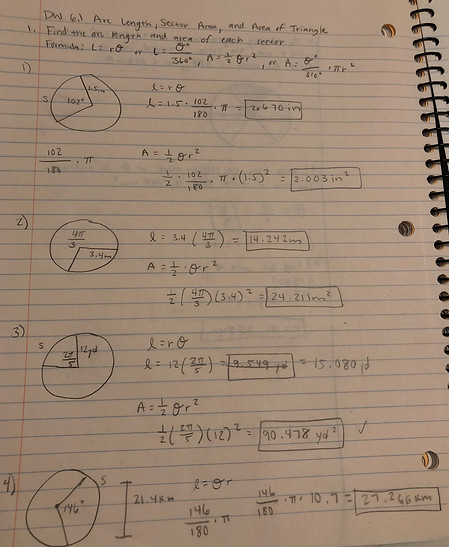 DW 6.1 Arc Length, Sector Area, and Area of Triangle
1. Find the arc length and area of each sector
Formula: L = rθ or L = θ°/360°, A = 1/2 θr², or A = θ°/360° · πr²
1)
S 102° 1.5in
l = rθ
l = 1.5 · 102/180 · π = 2.670 in
102/180 · π
A = 1/2 θr²
1/2 · 102/180 · π · (1.5)² = 2.003 in²
2)
4π/3 3.4m
l = 3.4 (4π/3) = 14.242m
A = 1/2 · θr²
1/2 (4π/3)(3.4)² = 24.211m²
3)
S 2π/5 12yd
l = rθ
l = 12(2π/5) = 9.549 yd = 15.080 yd
A = 1/2 θr²
1/2 (2π/5)(12)² = 90.478 yd² ✓
4)
S 146° 21.4km
l = θr
146/180 · π
146/180 · π · 10.7 = 27.266 km